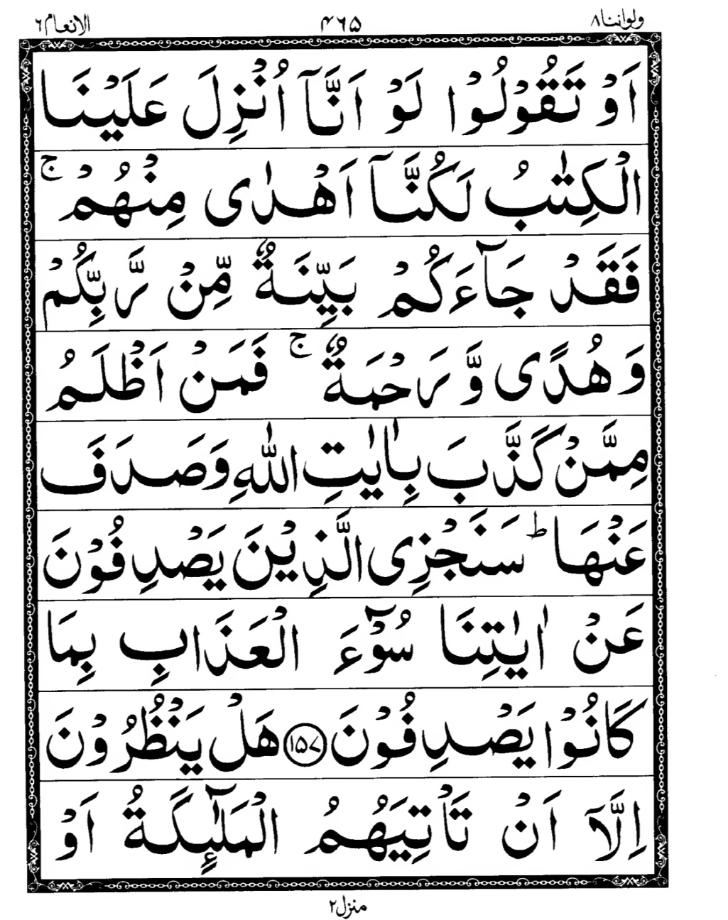 ولواننا ٨ ۴۶۵ الانعام ٦
اَوْ تَقُوْلُوْا لَوْ اَنَّاۤ اُنْزِلَ عَلَيْنَا
الْكِتٰبُ لَكُنَّاۤ اَهْدٰى مِنْهُمْ ۚ
فَقَدْ جَآءَكُمْ بَيِّنَةٌ مِّنْ رَّبِّكُمْ
وَ هُدًى وَّ رَحْمَةٌ ۚ فَمَنْ اَظْلَمُ
مِمَّنْ كَذَّبَ بِاٰيٰتِ اللّٰهِ وَصَدَفَ
عَنْهَا ؕ سَنَجْزِى الَّذِيْنَ يَصْدِفُوْنَ
عَنْ اٰيٰتِنَا سُوْٓءَ الْعَذَابِ بِمَا
كَانُوْا يَصْدِفُوْنَ ﴿۱۵۷﴾ هَلْ يَنْظُرُوْنَ
اِلَّاۤ اَنْ تَاْتِيَهُمُ الْمَلٰٓئِكَةُ اَوْ
منزل ٢